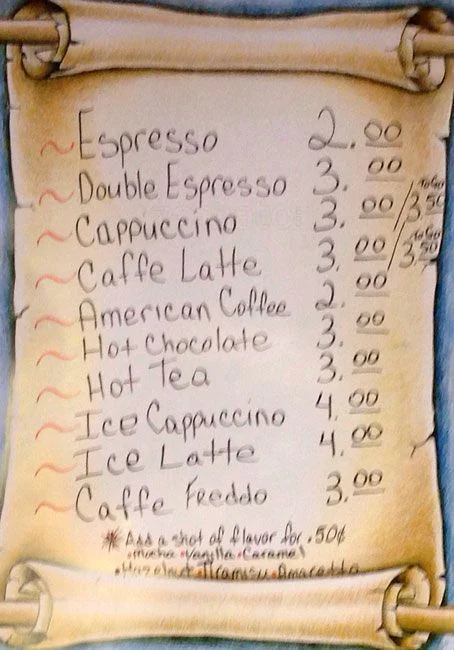 ~Espresso 2.00
~Double Espresso 3.00
~Cappuccino 3.00/3.50 to Go
~Caffe Latte 3.00/3.50 to Go
~American Coffee 2.00
~Hot Chocolate 3.00
~Hot Tea 3.00
~Ice Cappuccino 4.00
~Ice Latte 4.00
~Caffe Freddo 3.00
* Add a shot of flavor for .50¢
•Mocha •Vanilla •Caramel
•Hazelnut •Tiramisu •Amaretto